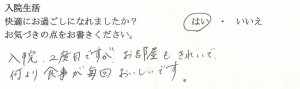 入院生活
快適にお過ごしになれましたか? はい ・ いいえ
お気づきの点をお書きください。
入院、2度目ですが、お部屋もきれいで、
何より食事が毎回おいしいです。